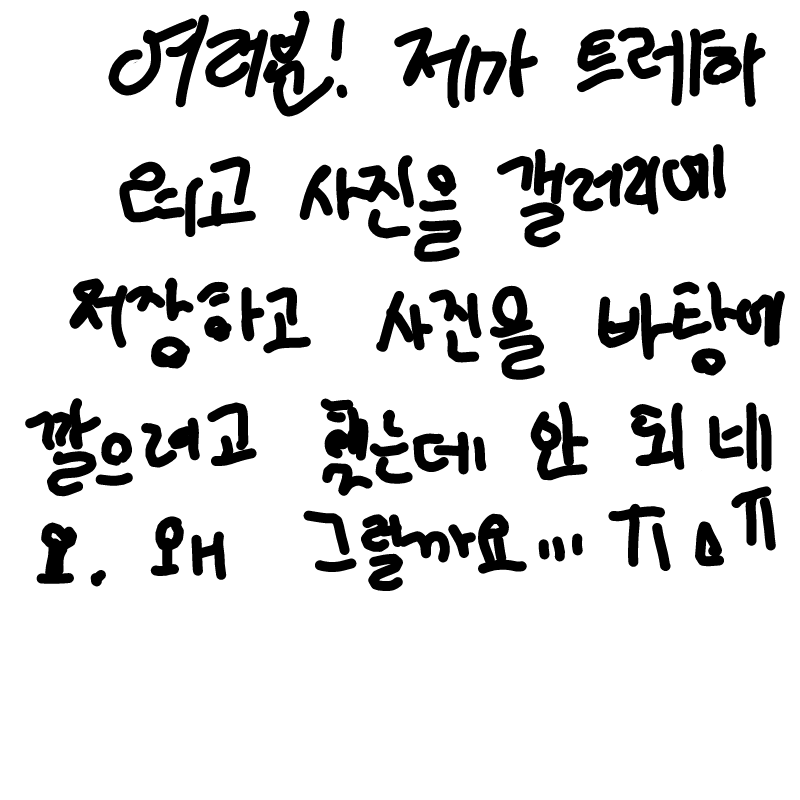 여러분! 저가 트레하
려고 사진을 갤러리에
저장하고 사진을 바탕에
깔으려고 했는데 안 되네
요. 왜 그럴까요... ㅠㅁㅠ